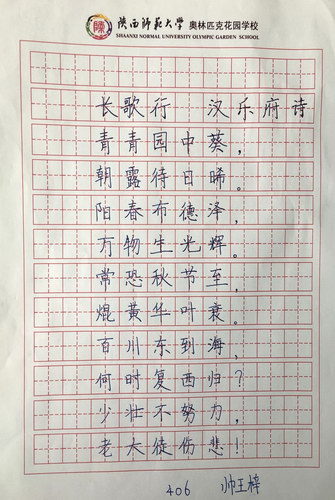 陕西师范大学 奥林匹克花园学校
SHAANXI NORMAL UNIVERSITY OLYMPIC GARDEN SCHOOL
长歌行 汉乐府诗
青青园中葵，
朝露待日晞。
阳春布德泽，
万物生光辉。
常恐秋节至，
焜黄华叶衰。
百川东到海，
何时复西归？
少壮不努力，
老大徒伤悲！
406 帅王梓